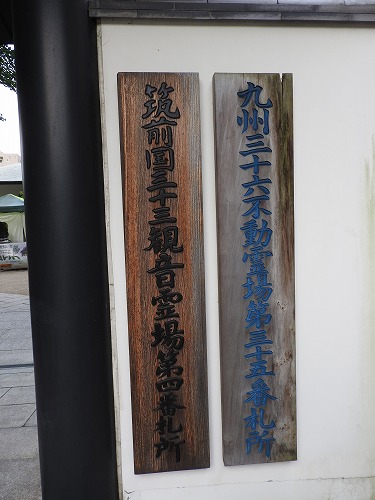 九州三十六不動霊場第三十五番札所
筑前国三十三観音霊場第四番札所